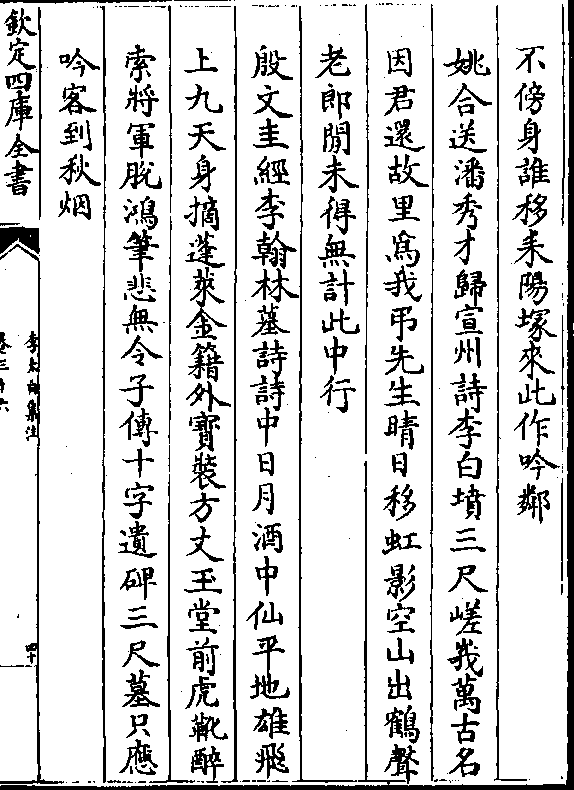 不傍身誰移耒陽塚來此作吟鄰
姚合送潘秀才歸宣州詩李白墳三尺嵯峩萬古名
因君還故里為我弔先生晴日移虹影空山出鶴聲
老郎閒未得無計此中行
殷文圭經李翰林墓詩詩中日月酒中仙平地雄飛
上九天身摘蓬萊金籍外寳裝方丈玉堂前虎靴醉
索將軍脫鴻筆悲無令子傳十字遺碑三尺墓只應
吟客到秋烟
欽定四庫全書
李太白集注
卷三十六
四十